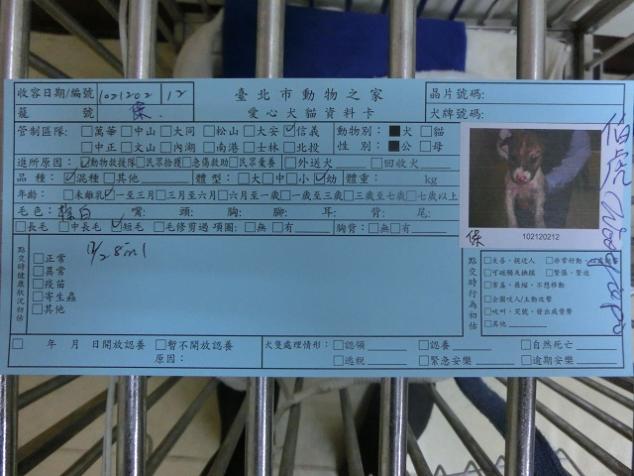 臺北市動物之家
愛心犬貓資料卡
收容日期/編號 1021202 12
晶片號碼:
籠 號 保
犬牌號碼:
管制區隊: □萬華□中山□大同 □松山□大安☑信義
□中正□文山□內湖 □南港□士林□北投
動物別: ■犬 □貓
性 別: ■公 □母
進所原因: ☑動物救援隊□民眾拾獲□急傷救助□民眾棄養 □外送犬 □回收犬
品 種: ☑混種□其他 體 型: □大□中□小☑幼 體重: kg
年齡: □未離乳☑一至三月□三月至六月□六月至一歲□一歲至三歲□三歲至七歲□七歲以上
毛色: 白 嘴: 頭: 胸: 腳: 耳: 背: 尾:
□長毛 □中長毛 ☑短毛 □毛修剪過 項圈: □無 □有 胸背: □無□有
點交時健康狀況初估
□正常
□異常
□疫苗
□寄生蟲
□其他
保 102120212
伯虎
點交時行為初估
□其他
□ 年 月 日開放認養 □暫不開放認養
原因:
犬隻處理情形: □認領 □認養 □自然死亡
□逃脫 □緊急安樂 □逾期安樂